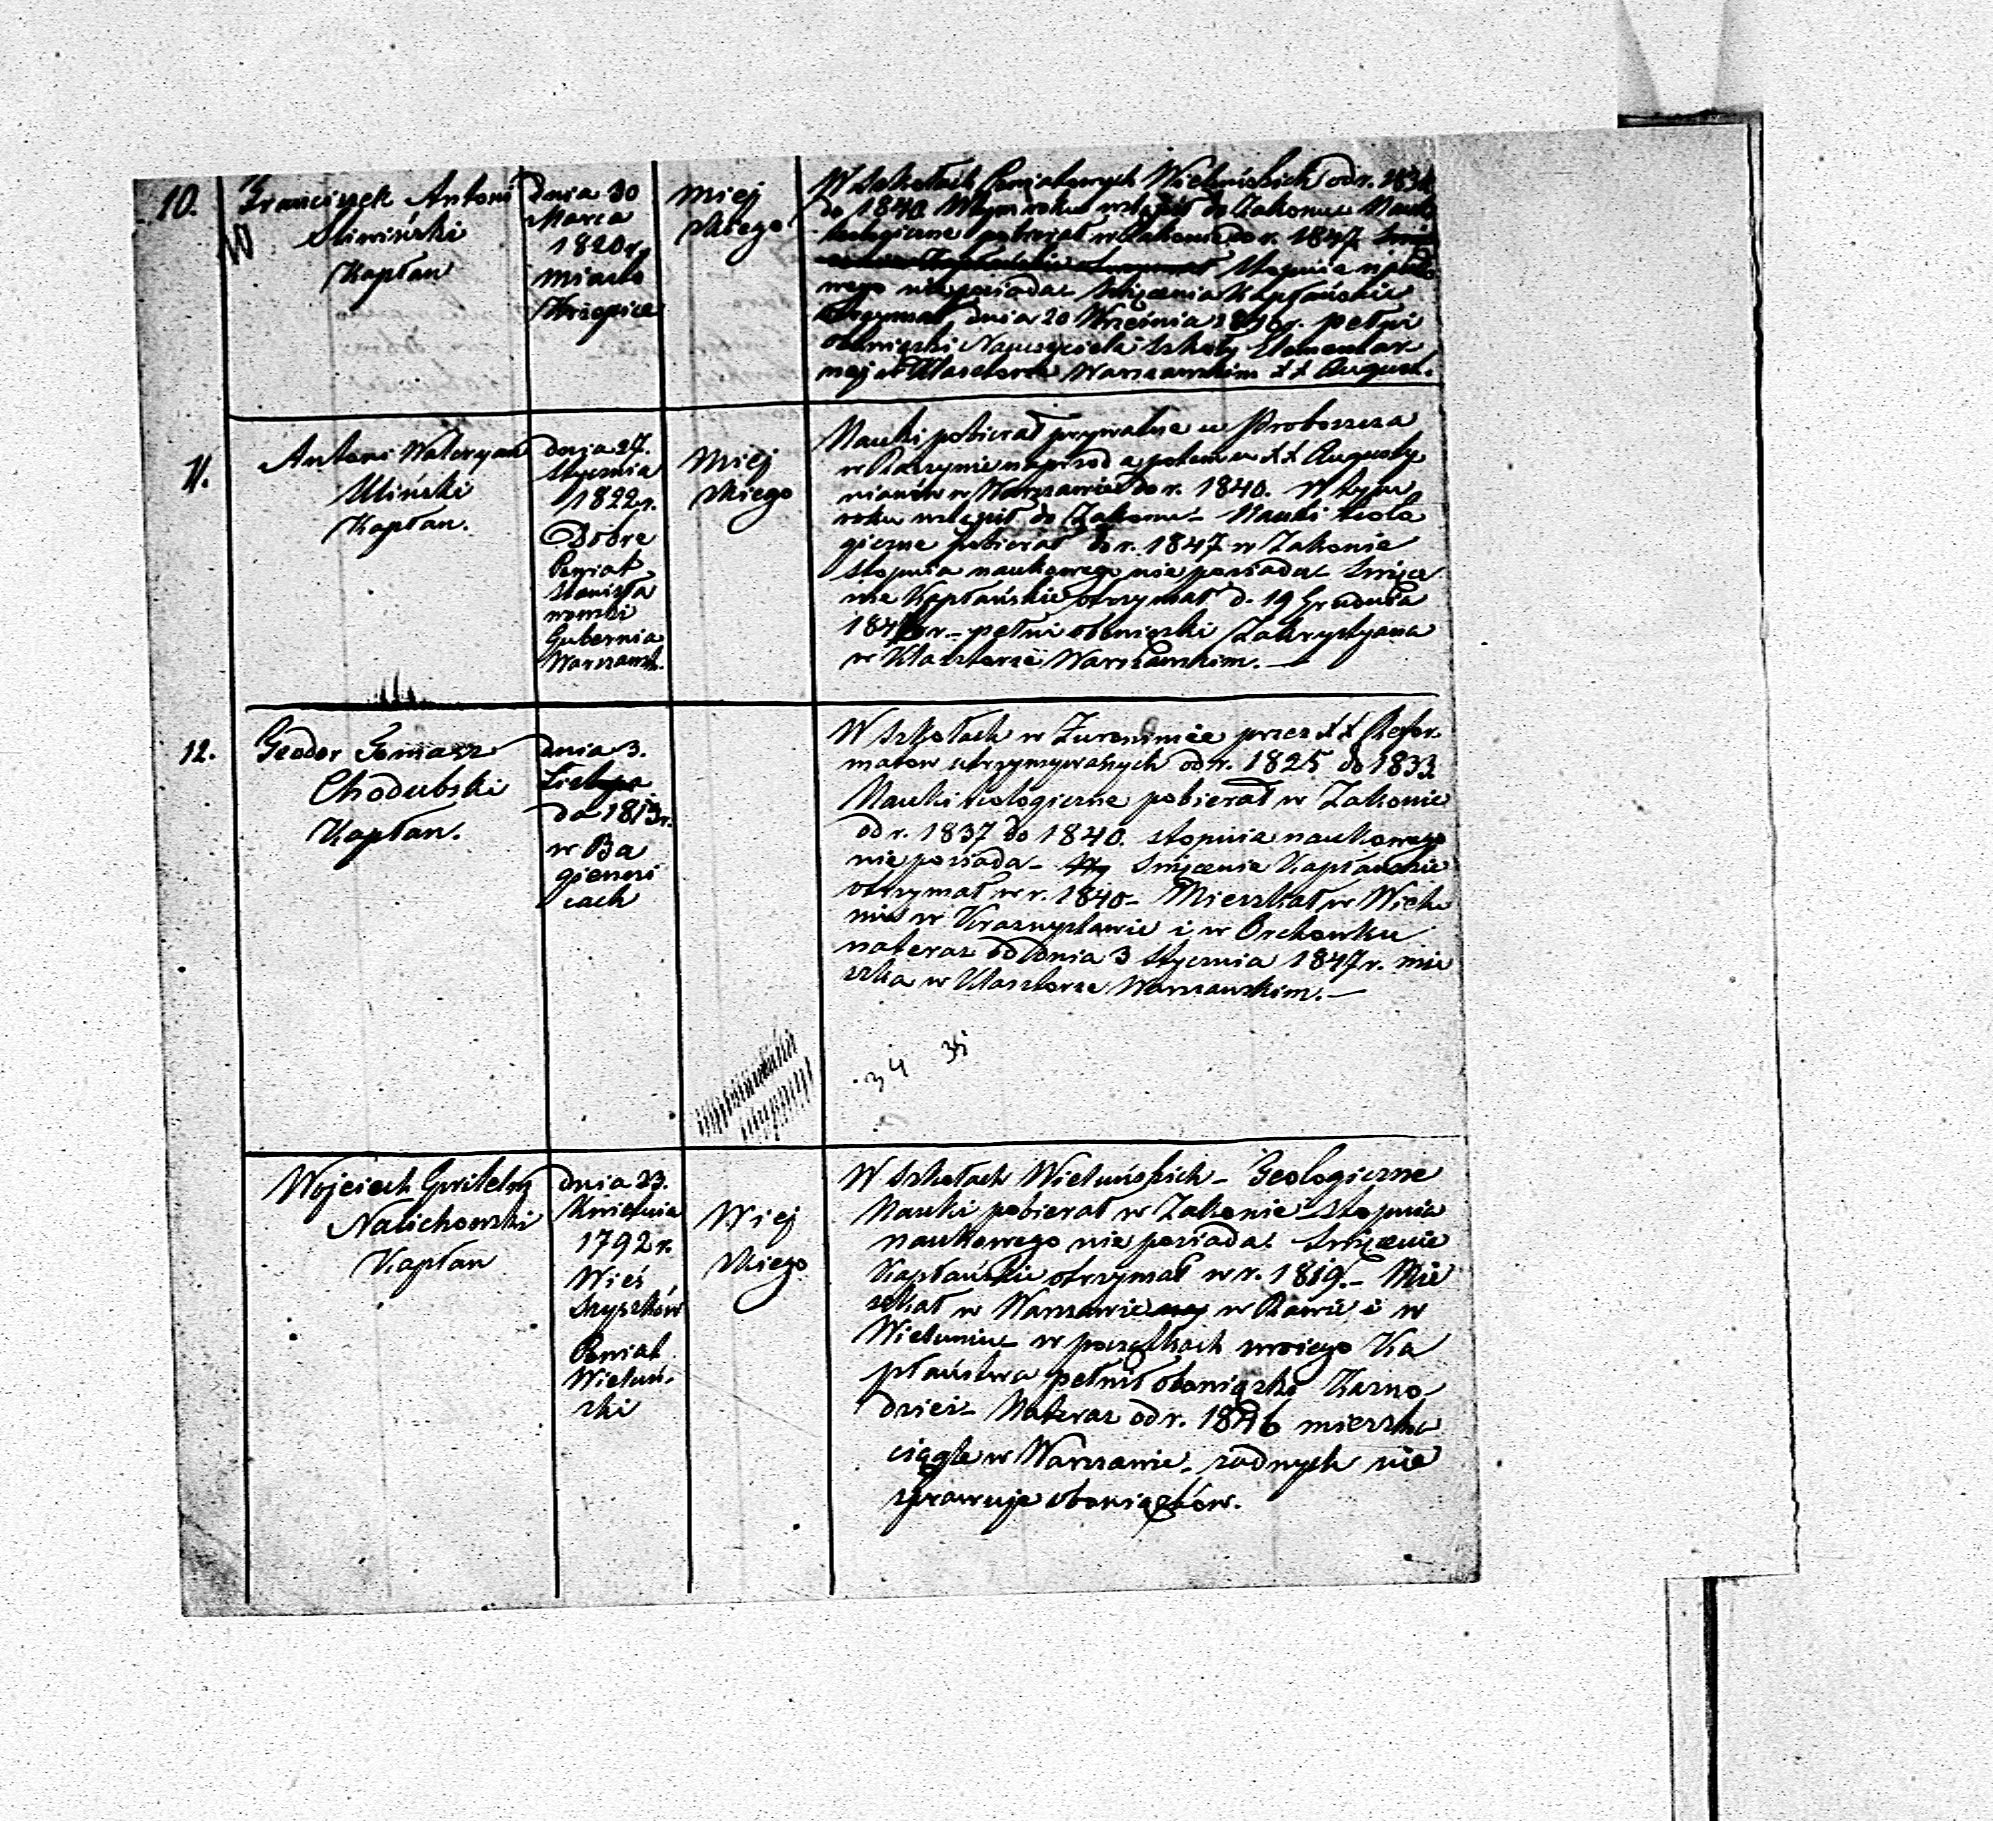 10.
Franciszek Antoni
Sliwiński
Kapłan
dnia 30
Marca
1820 r.
miasto
Krzepice
Miej
skiego
W szkołach Powiatowych Wieluńskich od r.
do 1840. W tym roku wstąpił do Zakonu Nauki
teologiczne pobierał w Zakonie do r. 1847.
Stopnia nauko
wego nie posiada Święcenia Kapłańskie
otrzymał dnia 20 Września pełni
obowiązki Nauczyciela Szkoły Elementar
nej w Klasztorze Warszawskim XX August.
11.
Antoni Waleryan
Uliński
Kapłan.
dnia 27.
Stycznia
1822 r.
Dobre
Powiat
Stanisła
wowski
Gubernia
Warszawsk.
Miej
skiego
Nauki pobierał prywatne u Proboszcza
w naprzód a potem u XX Augusty
nianów w Warszawie do r. 1840. W tym
roku wstąpił do Zakonu - Nauki teolo
giczne pobierał do r. 1847 w Zakonie
Stopnia naukowego nie posiada - Święce
nie Kapłańskie otrzymał d. 19 Grudnia
pełni obowiązki Zakrystyana
w Klasztorze Warszawskim. -
12.
Teodor Tomasz
Chodubski
Kapłan.
dnia 3.
Listopa
da 1813 r.
w Ba
gienosi
cach
W szkołach w Zurominie przez XX Refor.
matow utrzymywanych od r. 1825 do 1833.
Nauki teologiczne pobierał w Zakonie
od r. 1837 do 1840. stopnia naukowego
nie posiada - Święcenie Kapłańskie
otrzymał w r. 1840 - Mieszkał w Wielu
niu w Krasnymstawie i w Orchowku
nateraz od dnia 3 Stycznia 1847 r. mie
szka w Klasztorze Warszawskim. -
34
Wojciech
Nalichowski
Kapłan
dnia 23.
Kwietnia
1792 r.
Wieś
Szyszków
Powiat
Wieluń-
ski
Wiej
skiego
W szkołach Wieluńskich - Teologiczne
Nauki pobierał w Zakonie stopnia
naukowego nie posiada. Święcenie
Kapłańskie otrzymał w r. 1819. - Mie
szkał w Warszawie w Rawie i w
Wieluniu - w początkach swojego Ka
płaństwa pełnił obowiązki Kazno-
dziei - Nateraz od r. 1846 mieszka
ciągle w Warszawie - żadnych nie
sprawuje obowiązków.